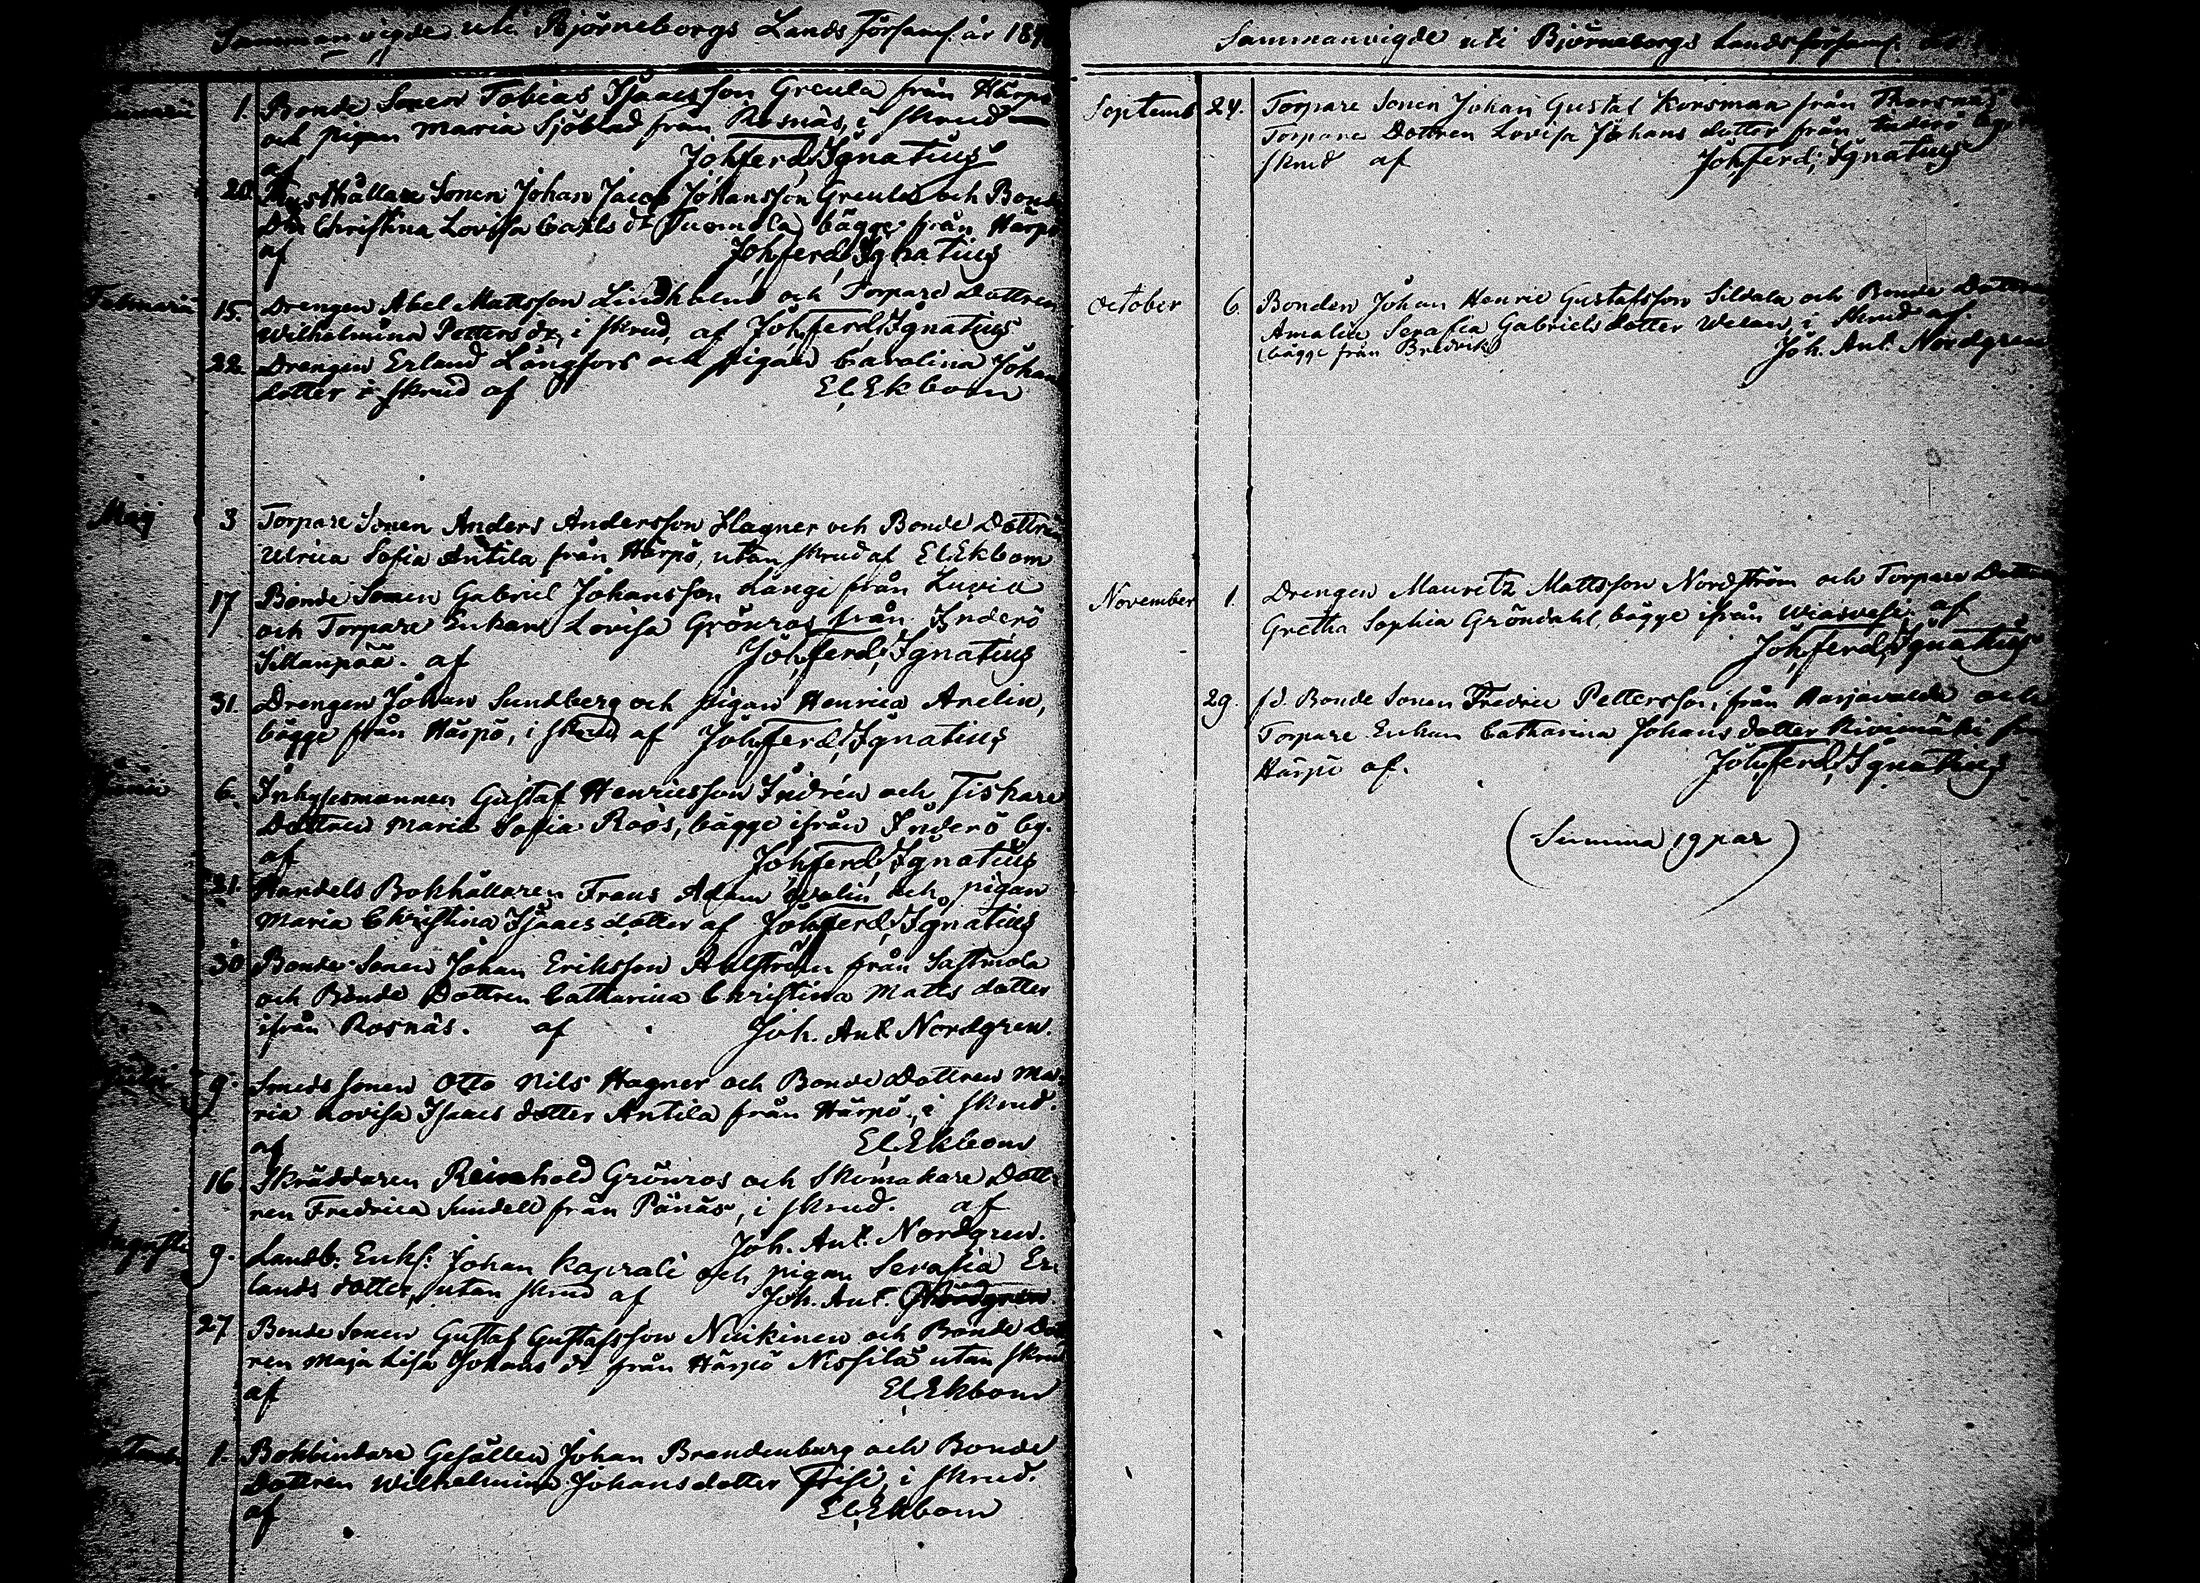 Sammanvigde uti Björneborgs Lands Församl. år
Januarii 1. Bonde Sonen Tobias Isaacsson Greula från Härpö
och pigan Maria Sjöblad från Rosnäs, i skrud
af Joh. Ferd. Ignatius
28. Rusthållare Sonen Johan Jacob Johansson Greula och Bonde
Dn Christina Lovisa Carls dr (Tuomola) bägge från Härpö
af Joh. Ferd. Ignatius
Februarii 15. Drengen Abel Mattsson Lindholm och Torpare Dottren
Wilhelmina Petters dr, i skrud, af Joh. Ferd. Ignatius
22. Drengen Erland Långfors och pigan Carolina Johans
dotter i skrud af El. Ekbom
Maij 3 Torpare Sonen Anders Andersson Hagner och Bonde Dottren
Ulrica Sofia Antila från Härpö, utan skrud af El. Ekbom
17 Bonde Sonen Gabriel Johansson Langi från Luvia
och Torpare Enkan Lovisa Grönros från Inderö
Sillanpää. af Joh. Ferd. Ignatius
31. Drengen Johan Sundberg och pigan Henrica Arelin,
bägge från Härpö, i skrud af Joh. Ferd. Ignatius
Junii 6. Inhysesmannen Gustaf Henricsson Indrén och Fiskare
Dottren Maria Sofia Roos, bägge ifrån Inderö by.
af Joh. Ferd. Ignatius
21. Handels Bokhållaren Frans Adam och pigan
Maria Christina Isaacs dotter af Joh. Ferd. Ignatius
30 Bonde Sonen Johan Eriksson Ahlström från Sastmola
och Bonde Dottren Catharina Christina Matts dotter
ifrån Rosnäs. af Joh. Ant. Nordgren.
Julii 9. Smeds sonen Otto Nils Hagner och Bonde Dottren Ma-
ria Lovisa Isaacs dotter Antila från Härpö, i skrud.
af El. Ekbom
16. Skräddaren Reinhold Grönros och Skomakare Dott-
ren Fredrica Sundell från Pänäs, i skrud. af
Joh. Ant. Nordgren.
Augusti 9. Landb: Enkl: Johan Kaprali och pigan Serafia Er-
lands dotter, utan skrud af Joh. Ant. Nordgren.
27 Bonde Sonen Gustaf Gustafsson Nuikinen och Bonde Dott
ren Maja Lisa Johans dr från Härpö Nissilä utan skrud
af El. Ekbom
Septemb 1. Bokbindare Gesällen Johan Brandenburg och Bonde
Dottren Wilhelmina Johansdotter Frisi, i skrud.
af El. Ekbom
Sammanvigde uti Björneborgs Landsförsaml. år
Septemb 24. Torpare Sonen Johan Gustaf Korsman från Thorsnäs
Torpare Dottren Lovisa Johans dotter från Inderö by
skrud af Joh. Ferd. Ignatius
October 6. Bonden Johan Henric Gustafsson Sildala och Bonde Dottren
Amalia Serafia Gabriels dotter i skrud af
(bägge från Bredvik) Joh. Ant. Nordgren
November 1. Drengen Mauritz Mattsson Nordström och Torpare Dottren
Gretha Sophia Gröndahl, bägge ifrån Wiasvesi. af
Joh. Ferd. Ignatius
29. fd. Bonde Sonen Fredric Pettersson, från Harjavalda och
Torpare Enkan Catharina Johans dotter Kivimäki från
Härpö af. Joh. Ferd. Ignatius
(Summa 19 par)